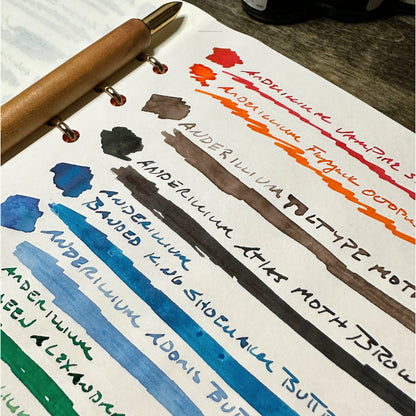 ANDERILLIUM VAMPIRE S
ANDERILLIUM FLAPJACK OCTOPU
ANDERILLIUM TULTYPE MOTH
ANDERILLIUM ATLAS MOTH BROW
ANDERILLIUM
BANDED KING SHOEMAKER BUTT
ANDERILLIUM ADONIS BUT
ANDERILLIUM
EEN ALEXANDR
LIUM